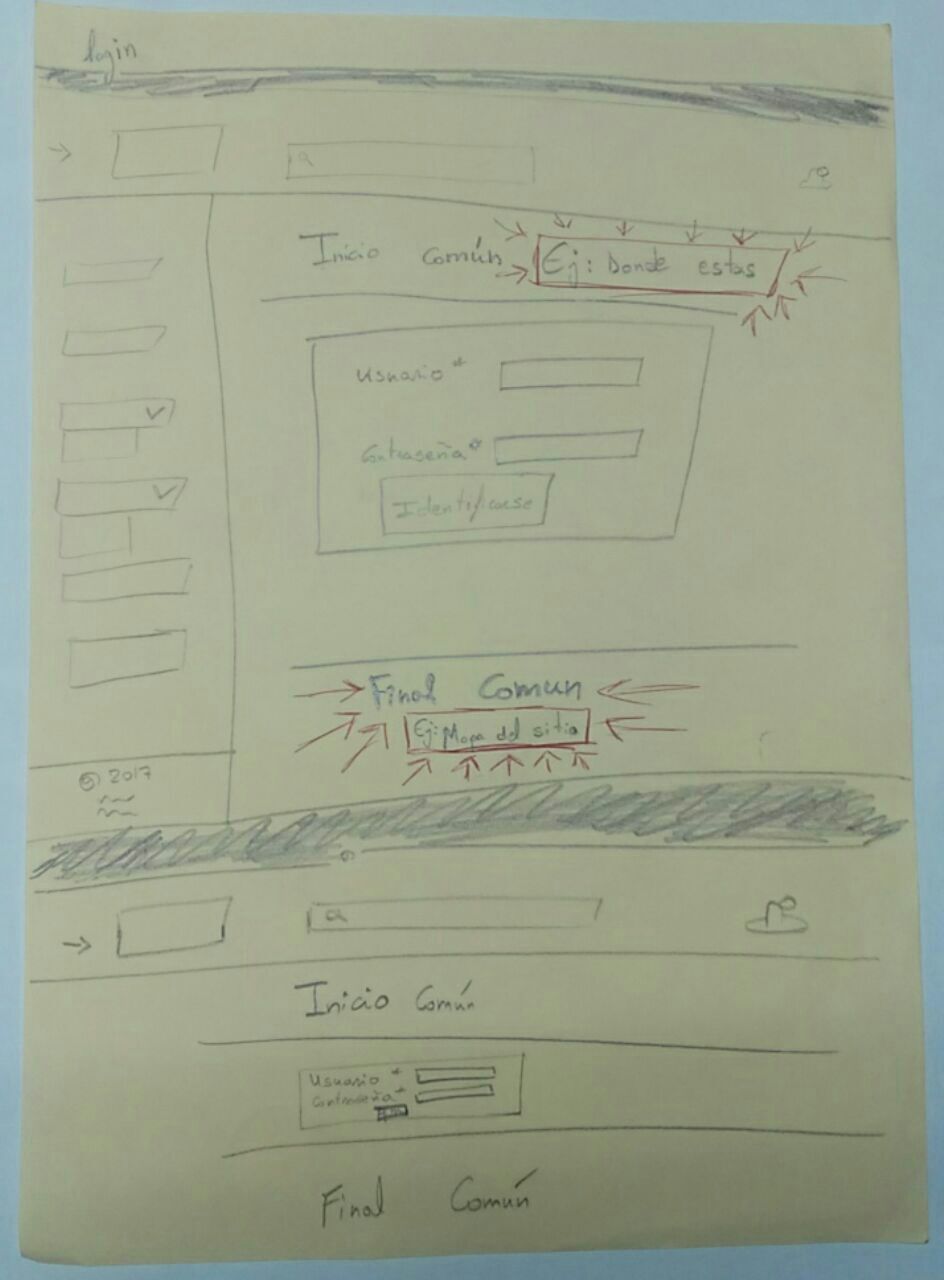 login
Inicio Común Ej: Donde estas
Usuario *
Contraseña *
Identificarse
Final Comun
Ej: Mapa del sitio
© 2017
Inicio Común
Usuario *
Contraseña *
Final Común